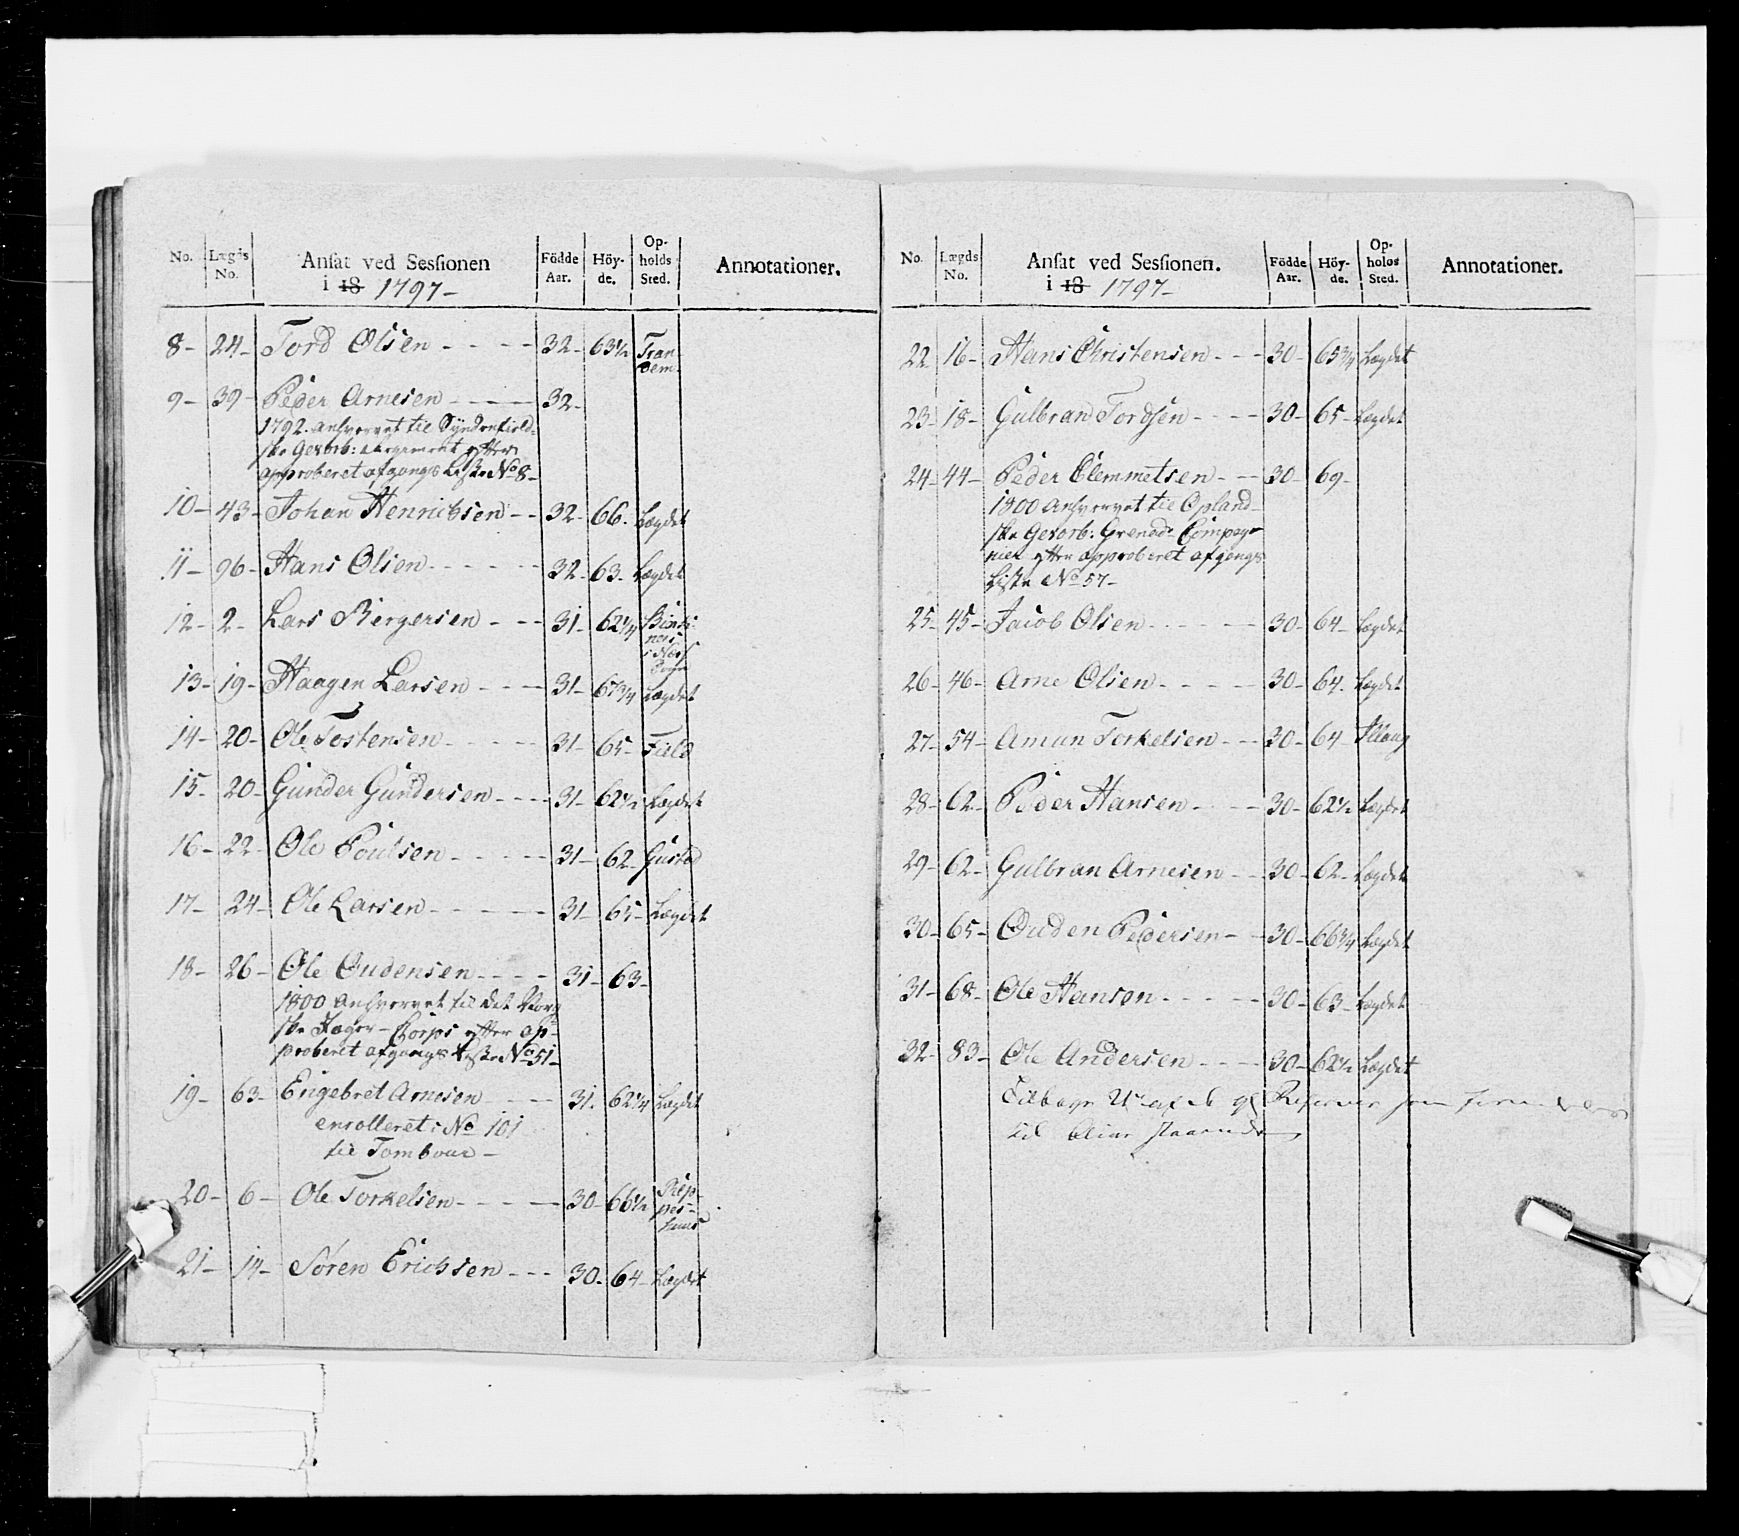 No. Lægds No. Ansat ved Sessionen i 18 1797- Födde Aar. Höy-de. Op-holds Sted. Annotationer.
8- 24- Tord Olsen - - - - 32- 63½ Tran
dem
9- 39- Peder Arnesen - - - - 32-
1792. anhvervet til Syndenfield-
ske Gevorb: Regement efter
approberet afgangs Liste No 8-
10- 43- Johan Henrichsen - - 32- 66. Lægdet
11- 96- Hans Olsen - - - - - 32- 63- Lægdet
12- 2- Lars Bergersen - - - 31- 62¼
i Næs
Sogn
13- 19- Haagen Larsen - - - 31- 67¾ Lægdet
14- 20- Ole Tostensen - - - - 31- 65- Fald
15- 20- Gunder Gundersen - - - 31- 62½ Lægdet
16- 22- Ole Poulsen - - - - 31- 62- Gustad
17- 24- Ole Larsen - - - - - 31- 65- Lægdet
18- 26- Ole Oudensen - - - - 31- 63-
1800 anhvervet til det Norg
ske Jæger-Corps efter ap-
proberet afgangs Liste No 51-
19- 63- Engebret Arnesen - - - 31. 62¼ Lægdet
enrolleret: No 101
til Tambour-
20- 6- Ole Torkelsen - - - - 30- 66½
21- 14- Sören Erichsen - - - 30- 64- Lægdet
No. Lægds No. Ansat ved Sessionen. i 18 1797- Födde Aar. Höy-de. Op-holds Sted. Annotationer.
22 16- Hans Christensen - - - 30- 65¾ Lægdet
23- 18- Gulbran Tordsen - - - - 30- 65- Lægdet
24- 44- Peder Clemmetsen - - - 30- 69-
1800 anhvervet til Opland-
ske Gevorb: Grenad- Compag-
nier efter approberet afgangs
Liste No 57-
25- 45- Jacob Olsen - - - - - 30- 64- Lægdet
26- 46- Arne Olsen - - - - - 30- 64- Lægdet
27- 54- Amun Torkelsen - - - 30- 64
28- 62- Peder Hansen - - - - 30- 62½ Lægdet
29- 62- Gulbran Arnesen - - 30- 62- Lægdet
30- 65- Ouden Pedersen - - 30- 66¾ Lægdet
31- 68- Ole Hansen - - - - - 30- 63- Lægdet
32- 83- Ole Andersen - - - - 30- 62½ Lægdet
af
til